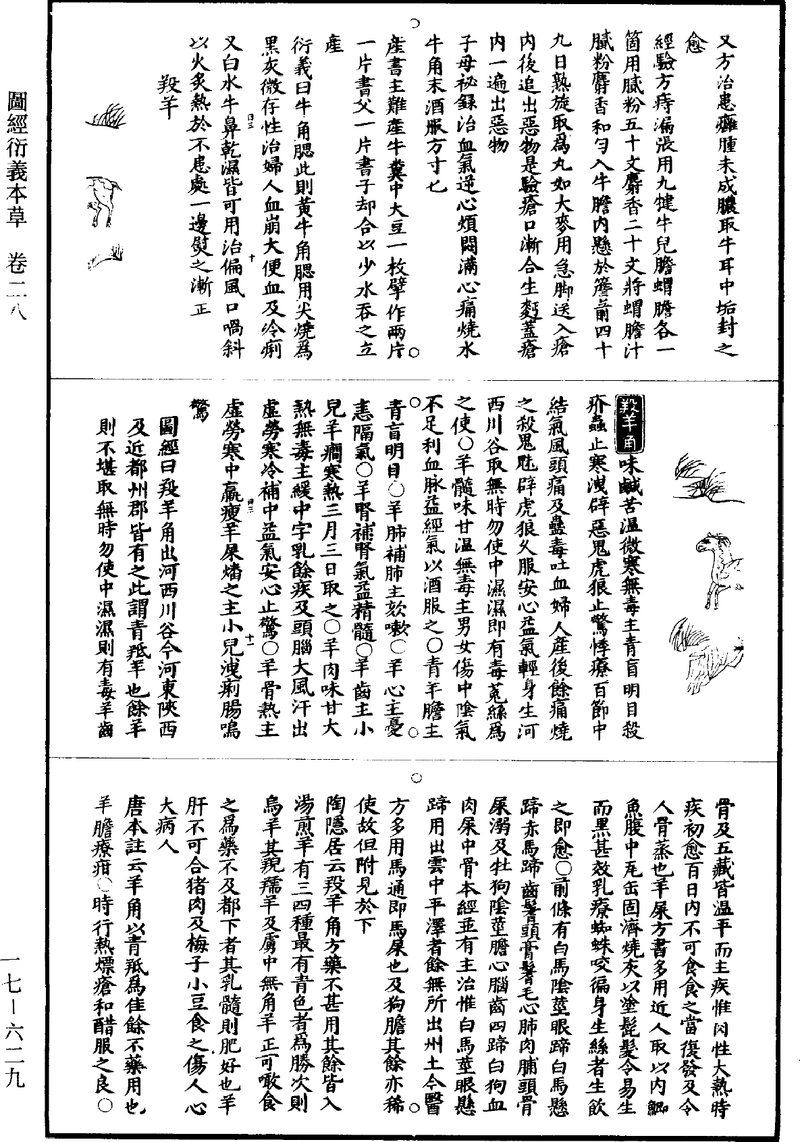 圖經衍義本草　卷二八
一七—六二九
又方治患癰腫未成膿取牛耳中垢封之
愈
經驗方痔漏張用九犍牛兒膽蝟膽各一
箇用膩粉五十文麝香二十文將蝟膽汁
膩粉麝香和勻入牛膽內懸於簷前四十
九日熟旋取為丸如大麥用急脚送入瘡
內後追出惡物是驗瘡口漸合生麪蓋瘡
內一遍出惡物
子母祕錄治血氣逆心煩悶滿心痛燒水
牛角末酒服方寸匕
產書主難產牛糞中大豆一枚擘作兩片
一片書父一片書子却合以少水吞之立
產
衍義曰牛角䚡此則黃牛角䚡用尖燒為
黑灰微存性治婦人血崩大便血及冷痢
又白水牛鼻乾濕皆可用治偏風口喎斜
以火炙熱於不患處一邊熨之漸正
羖羊
羖羊角味鹹苦溫微寒無毒主青盲明目殺
疥蟲止寒洩辟惡鬼虎狼止驚悸療百節中
結氣風頭痛及蠱毒吐血婦人產後餘痛燒
之殺鬼魅辟虎狼久服安心益氣輕身生河
西川谷取無時勿使中濕濕即有毒菟絲為
之使○羊髓味甘溫無毒主男女傷中陰氣
不足利血脉益經氣以酒服之○青羊膽主
青盲明目○羊肺補肺主欬嗽○羊心主憂
恚隔氣○羊腎補腎氣益精髓○羊齒主小
兒羊癇寒熱三月三日取之○羊肉味甘大
熱無毒主緩中字乳餘疾及頭腦大風汗出
虛勞寒冷補中益氣安心止驚○羊骨熱主
虛勞寒中羸瘦羊屎燔之主小兒洩痢腸鳴
驚
圖經曰羖羊角出河西川谷今河東陝西
及近都州郡皆有之此謂青羝羊也餘羊
則不堪取無時勿使中濕濕則有毒羊齒
骨及五藏皆溫平而主疾惟肉性大熱時
疾初愈百日內不可食食之當復發及令
人骨蒸也羊屎方書多用近人取以內鯽
魚腹中瓦缶固濟燒灰以塗髭髮令易生
而黑甚效乳療蜘蛛咬徧身生絲者生飲
之即愈○前條有白馬陰莖眼蹄白馬懸
蹄赤馬蹄齒鬐頭膏鬐毛心肺肉脯頭骨
屎溺及牡狗陰莖膽心腦齒四蹄白狗血
肉屎中骨本經並有主治惟白馬莖眼懸
蹄用出雲中平澤者餘無所出州土今醫
方多用馬通即馬屎也及狗膽其餘亦稀
使故但附見於下
陶隱居云羖羊角方藥不甚用其餘皆入
湯煎羊有三四種最有青色者為勝次則
烏羊其羖䍽羊及虜中無角羊正可噉食
之為藥不及都下者其乳髓則肥好也羊
肝不可合猪肉及梅子小豆食之傷人心
大病人
唐本註云羊角以青羝為佳餘不藥用也
羊膽療疳○時行熱熛瘡和醋服之良○